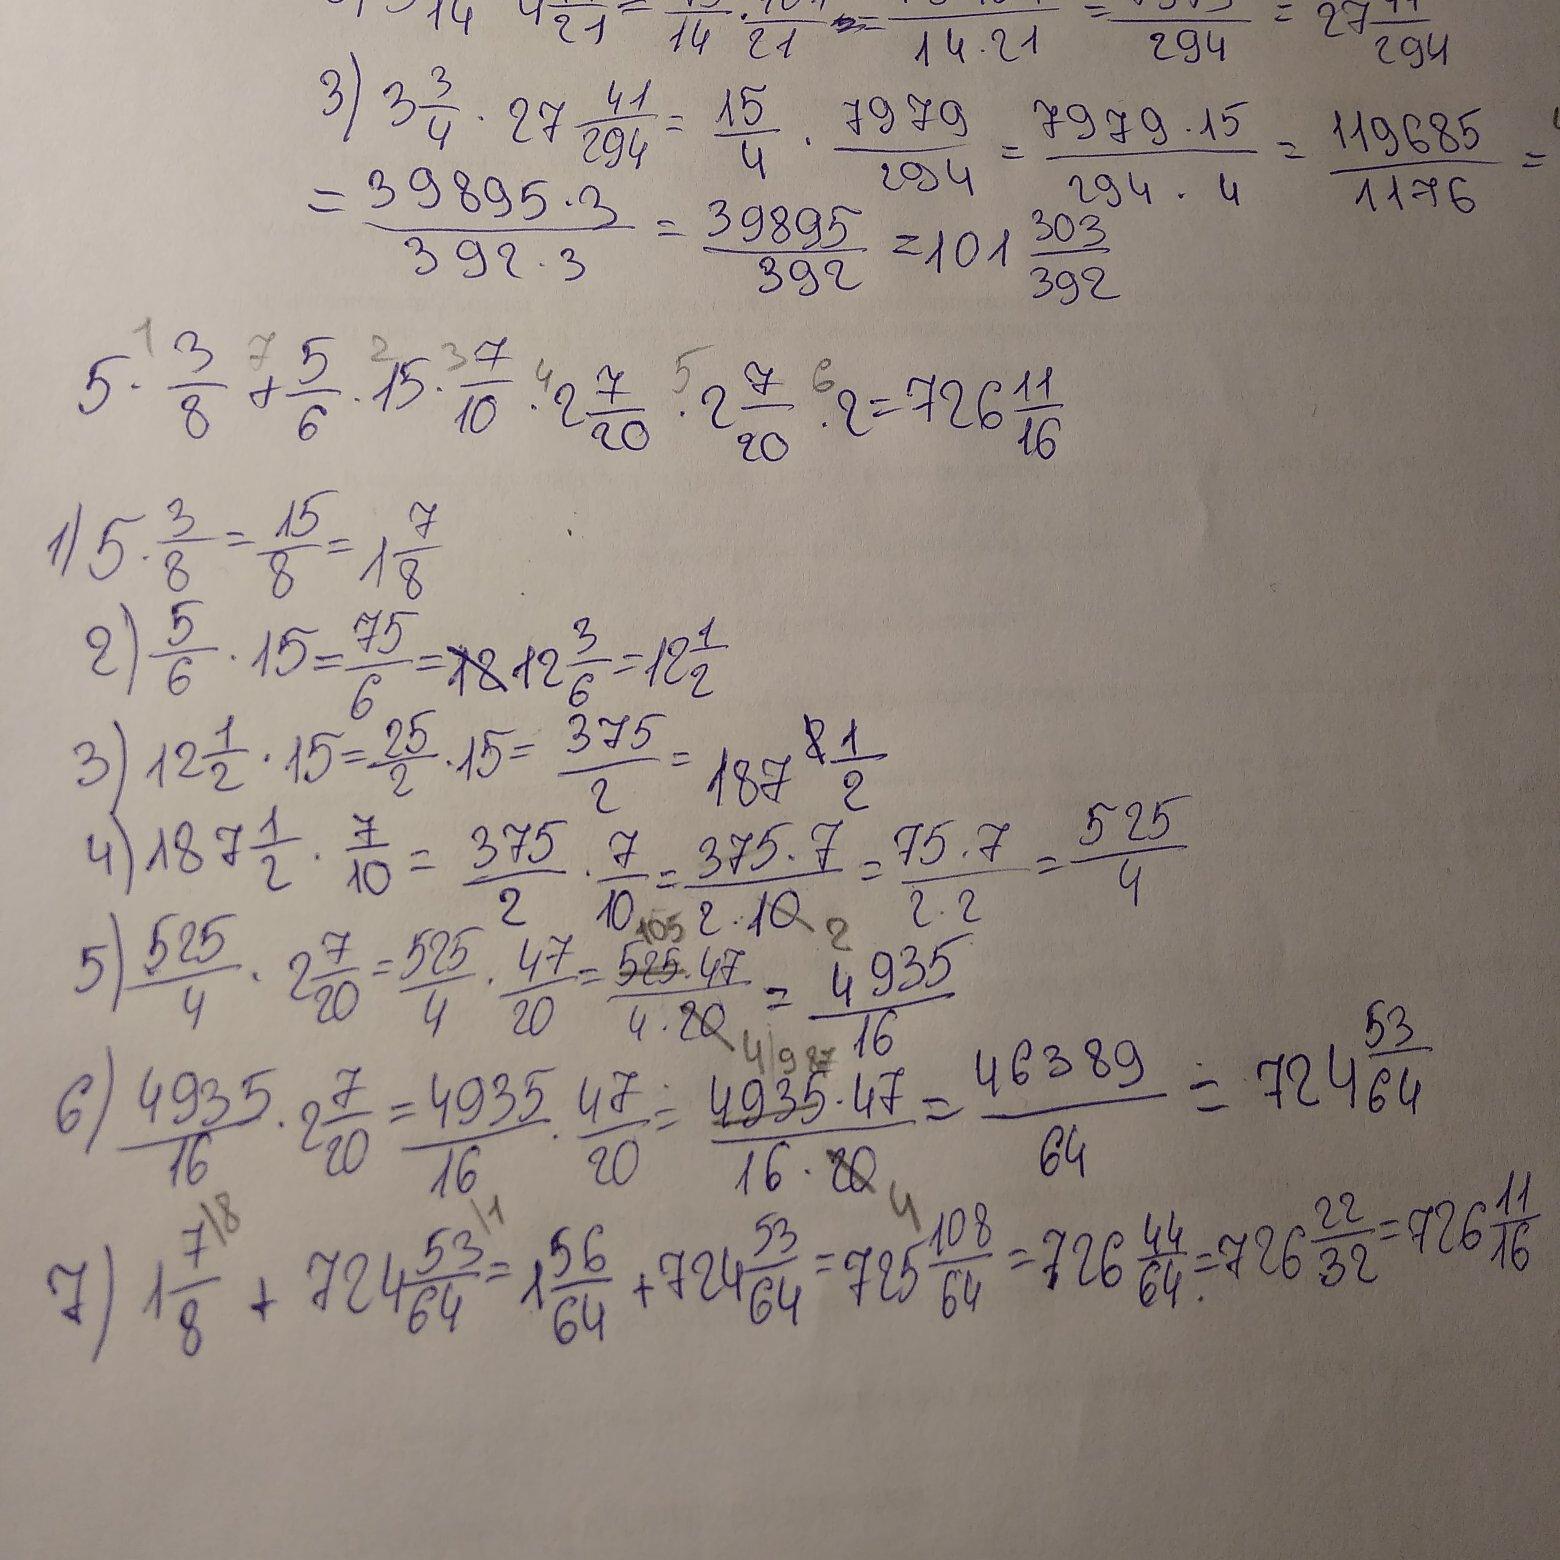 14 4 21 = 14 · 21 = 14·21 = 294 = 27 294
3) 3 3/4 · 27 41/294 = 15/4 · 7979/294 = 7979·15/294·4 = 119685/1176 =
= 39895·3/392·3 = 39895/392 = 101 303/392
1 7 2 3 4 5 6
5 · 3/8 + 5/6 · 15 · 7/10 · 2 7/20 · 2 7/20 · 2 = 726 11/16
1) 5 · 3/8 = 15/8 = 1 7/8
2) 5/6 · 15 = 75/6 = 12 3/6 = 12 1/2
3) 12 1/2 · 15 = 25/2 · 15 = 375/2 = 187 1/2
4) 187 1/2 · 7/10 = 375/2 · 7/10 = 375·7/2·10 = 75·7/2·2 = 525/4
2
105
5) 525/4 · 2 7/20 = 525/4 · 47/20 = 525·47/4·20 = 4935/16
4 987
6) 4935/16 · 2 7/20 = 4935/16 · 47/20 = 4935·47/16·20 = 46389/64 = 724 53/64
4
7) 1 7/8 \8 + 724 53/64 \1 = 1 56/64 + 724 53/64 = 725 108/64 = 726 44/64 = 726 22/32 = 726 11/16